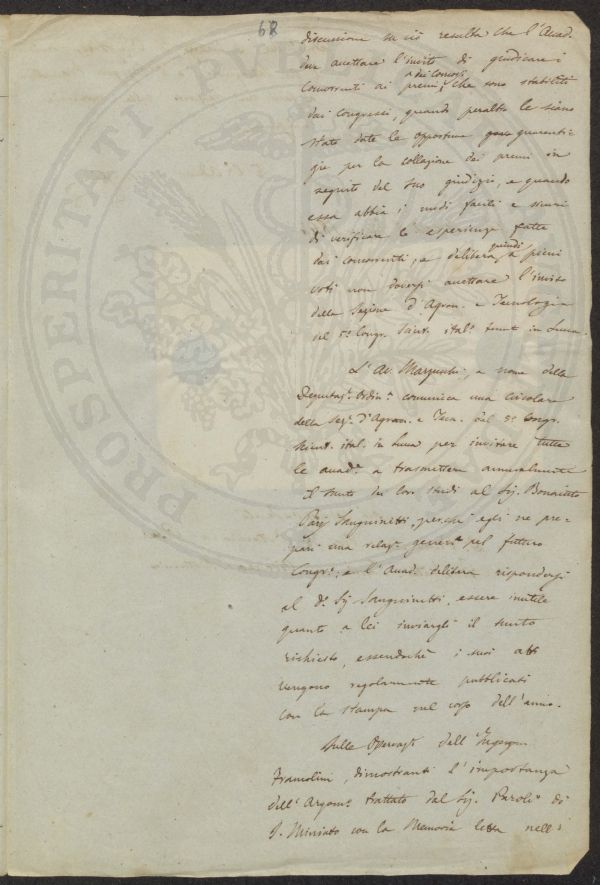 68
discussione su ciò resulta che l'Accad.
deve accettare l'invito di giudicare i
concorrenti ai premj, e dei concorsi che sono stabiliti
dai Congressi, quando peraltro le siano
state date le opportune guarenti-
gie per la collazione dei premi in
seguito del suo giudizio, e quando
essa abbia i modi facili e sicuri
di verificare le esperienze fatte
dai concorrenti; e delibera quindi a pieni
voti non doversi accettare l'invito
della Sezione d'Agron. e Tecnologia
del 5º Congr. Scient. ital. tenuto in Lucca.
L'Av. , a nome della
Deputazº. Ordinª. comunica una circolare
della Sezº. d'Agron. e Tecn. del 5º Congr.
Scient. ital. in Lucca per invitare tutte
le accadº. a trasmettere annualmente
il sunto dei loro studi al Sig. Bonaiuto
Paris Sanguinetti, perchè egli ne pre-
pari una relazº. generº. pel futuro
Congrº. e l'Accad. delibera rispondersi
al dº. Sig Sanguinetti, essere inutile
quanto a lei inviargli il sunto
richiesto, essendochè i suoi atti
vengono regolarmente pubblicati
con la stampa nel corso dell'anno.
Sulle Osservazº. dell'Ingegn.
, dimostranti l'importanza
dell'Argomº trattato dal Sig. di
S. Miniato con la Memoria letta nell'
PROSPERITATI PUBL